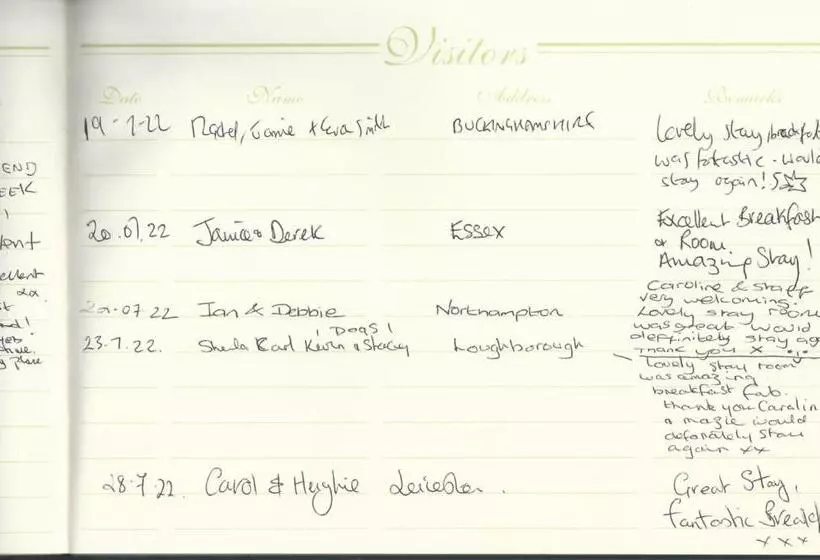 Visitors
Date Name Address Remarks
END
EEK
19-7-22 Jamie + Eva Smith BUCKINGHAMSHIRE Lovely stay, breakfast
was fatastic. would
stay again! 5☆
20.07.22 Janice & Derek ESSEX Excellent Breakfast
& Room.
Amazing Stay!
ellent
xx
Caroline & staff
very welcoming.
22.07 22 Ian & Debbie Northampton Lovely stay room
was great would
deffinitely stay ag
Thank you X
! DOGS !
23.7.22. Sheila Earl Kevin & Stacey Loughborough
Lovely stay room
was amazing
breakfast fab.
thank you Carolin
& mazie would
defanately stay
again xx
28.7.22. Carol & Hughie Leicester. Great Stay,
fantastic Breakf
x x x